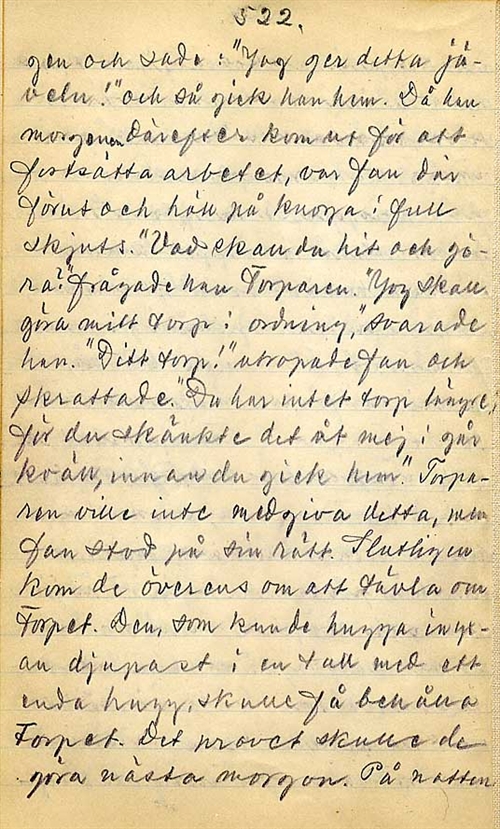 522.
gen och sade: "Jag ger detta jä-
veln!" och så gick han hem. Då han
morgonen därefter kom ut för att
fortsätta arbetet, var fan där
förut och höll på knoga i full
skjuts. "Vad skall du hit och gö-
ra?" frågade han Torparen. "Jag skall
göra mitt torp i ordning," svarade
han. "Ditt torp!" utropade fan och
skrattade. "Du har intet torp längre,
för du skänkte det åt mej i går
kväll, innan du gick hem." Torpa-
ren ville inte medgiva detta, men
fan stod på sin rätt. Slutligen
kom de överens om att tävla om
Torpet. Den, som kunde hugga inyx-
an djupast i en tall med ett
enda hugg, skulle få behålla
Torpet. Det provet skulle de
göra nästa morgon. På natten